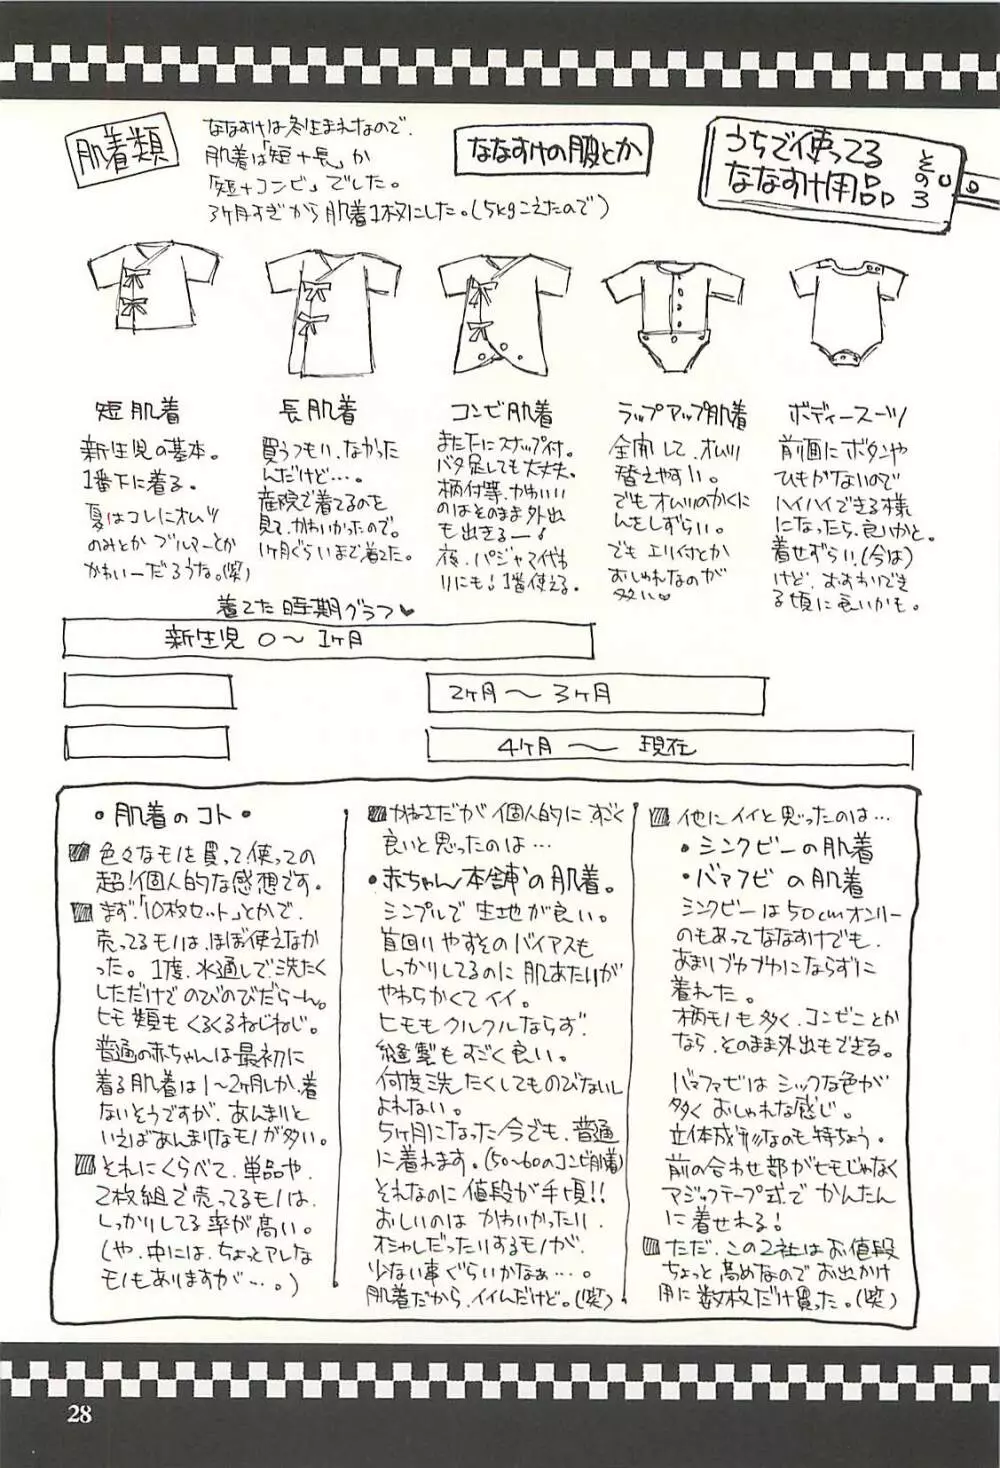 うちで使ってる
ななすけ用品
その3
ななすけの服とか
肌着類
ななすけは冬生まれなので、
肌着は「短+長」か
「短+コンビ」でした。
3ヶ月すぎから肌着1枚にした。(5kgこえたので)
短肌着
新生児の基本。
1番下に着る。
夏はコレにオムツ
のみとか ブルマーとか
かわいーだろうな。(笑)
長肌着
買うつもりなかった
んだけど…。
産院で着てるのを
見て、かわいかったので。
1ヶ月ぐらいまで着てた。
コンビ肌着
また下にスナップ付。
バタ足しても大丈夫。
柄付等、かわいい
のはそのまま外出
も出きるー!
夜、パジャマ代わ
りにも!1番使える。
ラップアップ肌着
全開して、オムツ
替えやすい。
でもオムツのかくに
んをしずらい。
でもエリ付とか
おしゃれなのが
多い♥
ボディースーツ
前面にボタンや
ひもがないので
ハイハイできる様
になったら、良いかと。
着せずらい。(今は)
けど、おすわりでき
る頃に良いかも。
着てた時期グラフ♥
新生児 0〜1ヶ月
2ヶ月〜3ヶ月
4ヶ月〜現在
・肌着のコト・
色々なモノを買って使っての
超!個人的な感想です。
まず、「10枚セット」とかで、
売ってるモノは、ほぼ使えなか
った。1度、水通しで洗たく
しただけでのびのびだらーん。
ヒモ類もくるくるねじねじ。
普通の赤ちゃんは最初に
着る肌着は1〜2ヶ月しか着
ないそうですが、あんまりと
いえばあんまりなモノが多い。
それにくらべて、単品や、
2枚組で売ってるモノは、
しっかりしてる率が高い。
(や、中には、ちょっとアレな
モノもありますが…。)
かねさだが個人的に、すごく
良いと思ったのは…
・赤ちゃん本舗の肌着。
シンプルで生地が良い。
首回りやすそのバイアスも
しっかりしてるのに肌あたりが
やわらかくてイイ。
ヒモもクルクルならず
縫製もすごく良い。
何度洗たくしてものびないし
よれない。
5ヶ月になった今でも、普通
に着れます。(50〜60のコンビ肌着)
それなのに値段が手頃!!
おしいのはかわいかったり、
オシャレだったりするモノが、
少ない事ぐらいかなぁ…。
肌着だから、イイんだけど。(笑)
他にイイと思ったのは…
・シンクビーの肌着
・バァフビの肌着
シンクビーは50cmオンリー
のもあってななすけでも、
あまりブカブカにならずに
着れた。
柄モノも多く、コンビことか
なら、そのまま外出もできる。
バァファビはシックな色が
多くおしゃれな感じ。
立体成形なのも特ちょう。
前の合わせ部がヒモじゃなく
マジックテープ式でかんたん
に着せれる!
ただ、この2社はお値段
ちょっと高めなのでお出かけ
用に数枚だけ買った。(笑)
28